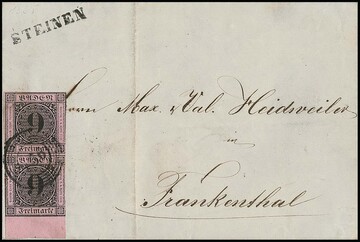 STEINEN
BADEN
9
Freimarke
BADEN
9
Freimarke
Herrn Max. & Val. Heidweiler
in
Frankenthal